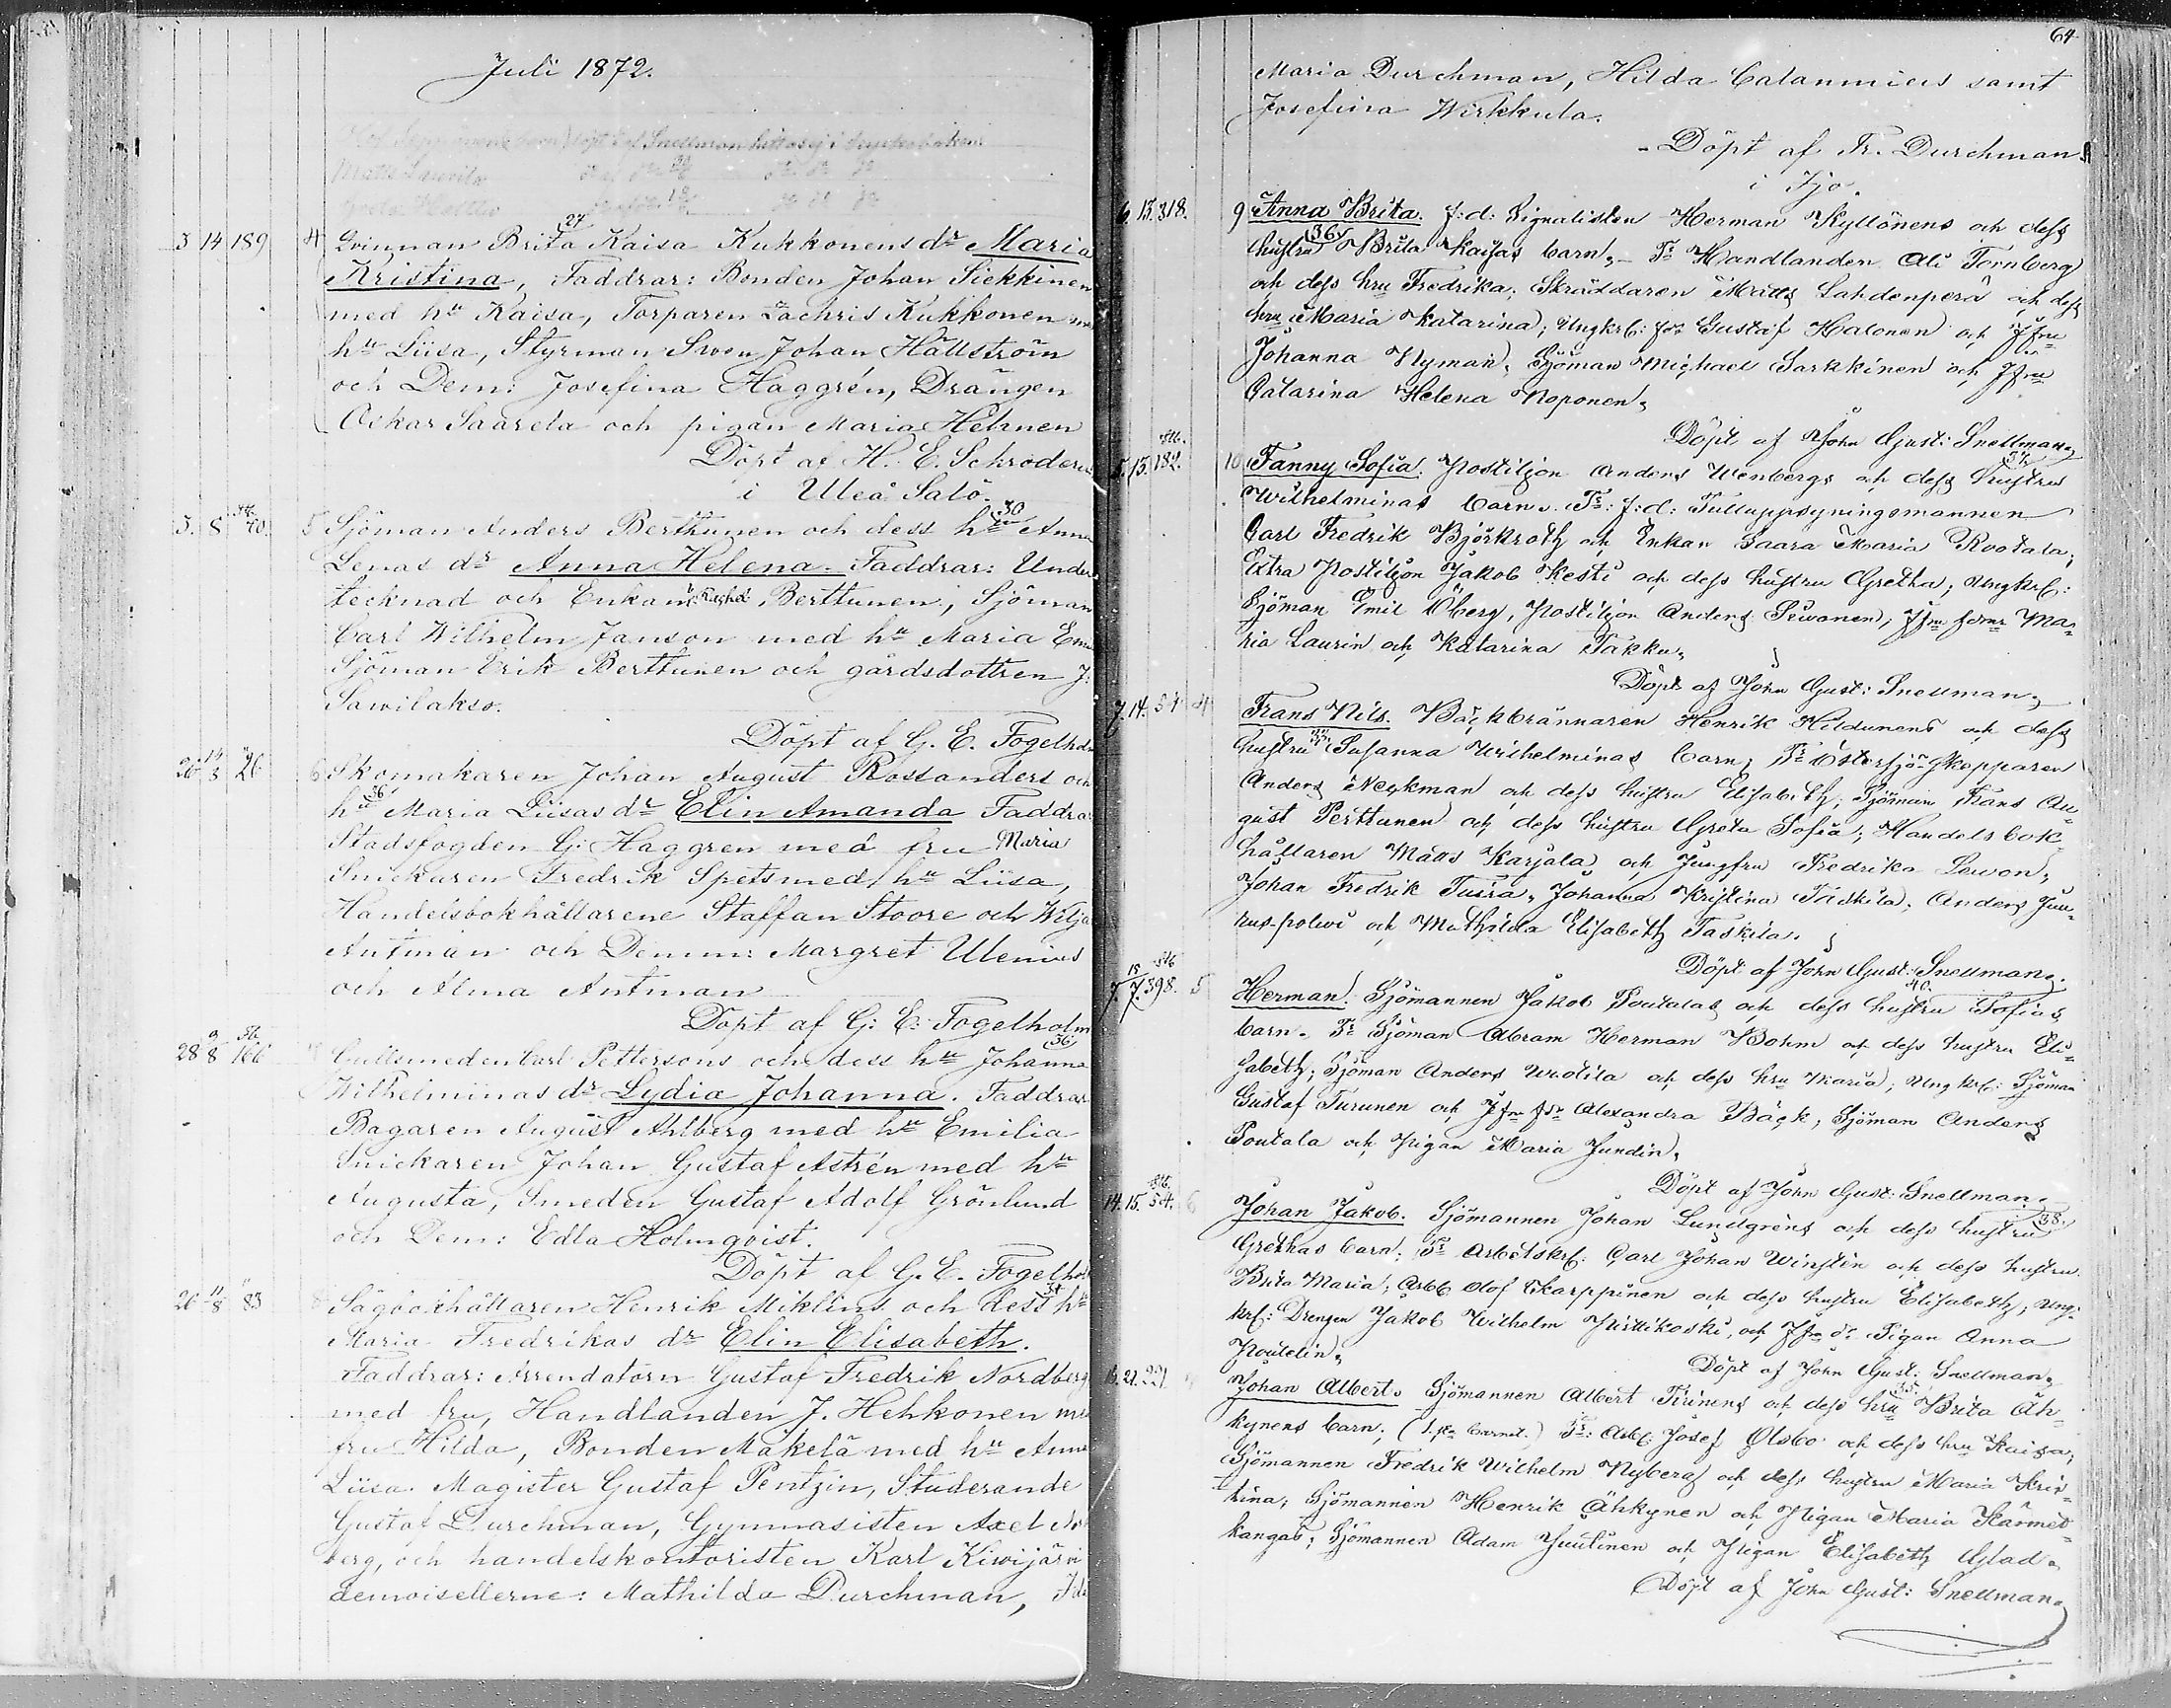 Juli 1872.
3 14 189 4 Qvinnan Brita Kaisa 27 Kukkonens dr Maria
Kristina, Faddrar: Bonden Johan Siekkinen
med hu Kaisa, Torparen Zachris Kukkonen
hu Liisa, Styrman Swen Johan Hällström
och Dem: Josefina Haggrén, Drängen
Oskar Saarela och pigan Maria Helmen
Döpt af H. E. Schroderus
i Uleå Salo.
3. 8 70. 5 Sjöman Anders Berttunen och dess hu 30 Anna
Lenas dr Anna Helena. Faddrar: Under
tecknad och Enkan Berttunen, Sjöman
Carl Wilhelm Janson med hu Maria
Sjöman Erik Berttunen och gårdsdottren J.
Sawilakso.
Döpt af G. E. Fogelholm
26 14/8 26 6 Skomakaren Johan August Rosanders och
hu 36 Maria Liisas dr Elin Amanda Faddrar
Stadsfogden G: Haggren med fru Maria
Snickaren Fredrik Spets med hu Liisa,
Handelsbokhållarene Staffan Stoore och
Antman och Demm: Margret Ulenius
och Alma Antman
Döpt af G: E: Fogelholm
28 9/8 166 Gullsmeden Carl Pettersons och dess hu 36 Johanna
Wilhelminas dr Lydia Johanna. Faddrar
Bagaren August Ahlberg med hu Emilia
Snickaren Johan Gustaf Astrén med hu
Augusta, Smeden Gustaf Adolf Grönlund
och Dem: Edla Holmqvist.
Döpt af G. E. Fogelholm
26 11/8 83 8 Sågbokhållaren Henrik Miklins och dess 34 hu
Maria Fredrikas dr Elin Elisabeth.
Faddrar: Arrendatorn Gustaf Fredrik Nordberg
med fru, Handlanden J. Hehkonen med
fru Hilda, Bonden Mäkelä med hu Anna
Liisa. Magister Gustaf Pentzin, Studerande
Gustaf Durchman, Gymnasisten Axel
berg, och handelskontoristen Karl Kiwijärvi
demoisellerne: Mathilda Durchman,
64
Maria Durchman, Hilda Calamnius samt
Josefina Wirkkula.
Döpt af Fr. Durchman
i Ijo.
6. 13. 318. 9 Anna Brita. f:d: Signalisten Herman Kyllönens och dess
hustru 36 Brita Kaisas barn. Fr Handlanden Ali Tornberg
och dess hru Fredrika; Skräddaren Matts Lahdenperä och dess
hru Maria Katarina; Ungkrl: fdr Gustaf Halonen och Jfru
Johanna Nyman, Sjöman Michael Sarkkinen och Jfru
Catarina Helena Noponen,
Döpt af John Gust: Snellman,
5. 13. 182. 10 Fanny Sofia. Postiljon Anders Wenbergs och dess hustru
Wilhelminas barn. Fr: f:d: Tulluppsyningsmannen
Carl Fredrik Björkroth och Enkan Saara Maria Rootala;
Extra Postiljon Jakob Kesti och dess hustru Gretha; Ungkrl:
Sjöman Emil Öberg, Postiljon Anders Siwonen, Jfru Ma-
ria Laurin och Katarina Takku,
Döpt af John Gust: Snellman,
7. 14. 54 4 Frans Nils. Bäckbrännaren Henrik Hildunens och dess
hustru Susanna Wilhelminas barn, Fr Östersjö-Skepparen
Anders Neckman och dess hustru Elisabeth, Sjöman Frans Au-
gust Perttunen och dess hustru Greta Sofia; Handels bok-
hållaren Matts Karjala och Jungfru Fredrika Lewon,
Johan Fredrik Tuira, Johanna Kristina Taskila, Anders Juu-
rus-polwi och Mathilda Elisabeth Taskila.
Döpt af John Gust: Snellman.
7. 18/7. 398. 5 Herman. Sjömannen Jakob Poutalas och dess hustru 40. Sofias
barn. Fr Sjöman Abram Herman Bohm och dess hustru Eli-
sabeth; Sjöman Anders Wuotila och dess hru Maria; Ungkrl: Sjöman
Gustaf Turunen och Jfru fdr Alexandra Bäck, Sjöman Anders
Poutala och Pigan Maria Jundin,
Döpt af John Gust: Snellman.
14. 15. 54. 6 Johan Jakob. Sjömannen Johan Lundgrens och dess hustru 38.
Grethas barn. Fr Arbetskrl: Carl Johan Winstén och dess hustru
Brita Maria; Arbk Olof Karppinen och dess hustru Elisabeth; Ung-
krl: Drengen Jakob Wilhelm Pirttikoski, och Jfru dr Pigan Anna
Poutelin,
Döpt af John Gust: Snellman,
16. 21. 221. Johan Albert. Sjömannen Albert Tirinens och dess hru 35. Brita Äh-
kynens barn, Fr: Arbk: Josef Olsbo och dess hru Kaisa;
Sjömannen Fredrik Wilhelm Nyberg och dess hustru Maria Kris-
tina; Sjömannen Henrik Ähkynen och Pigan Maria Kärmet-
kangas; Sjömannen Adam Huutinen och Pigan Elisabeth Glad.
Döpt af John Gust: Snellman.